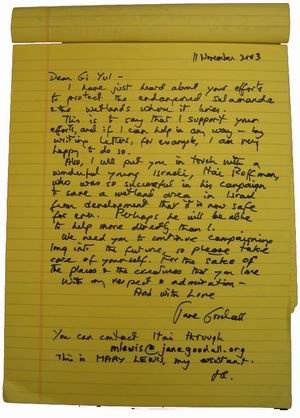 11 November 2003
Dear Gi Yul -
I have just heard about your efforts
to protect the endangered Salamander
& the wetlands where it lives.
This is to say that I support your
efforts, and if I can help in any way - by
writing letters, for example, I am very
happy to do so.
Also, I will put you in touch with a
wonderful young Israeli, Itai Roffman,
who was so successful in his campaign
to save a wetland area in Israel
from development that it is now safe
for ever. Perhaps he will be able
to help more directly than I.
We need you to continue campaigning
long into the future, so please take
care of yourself. For the sake of
the places & the creatures that you love
With my respect & admiration -
And with Love
Jane Goodall
You can contact Itai through
mlewis@janegoodall.org
This is MARY LEWIS, my assistant.
JG.